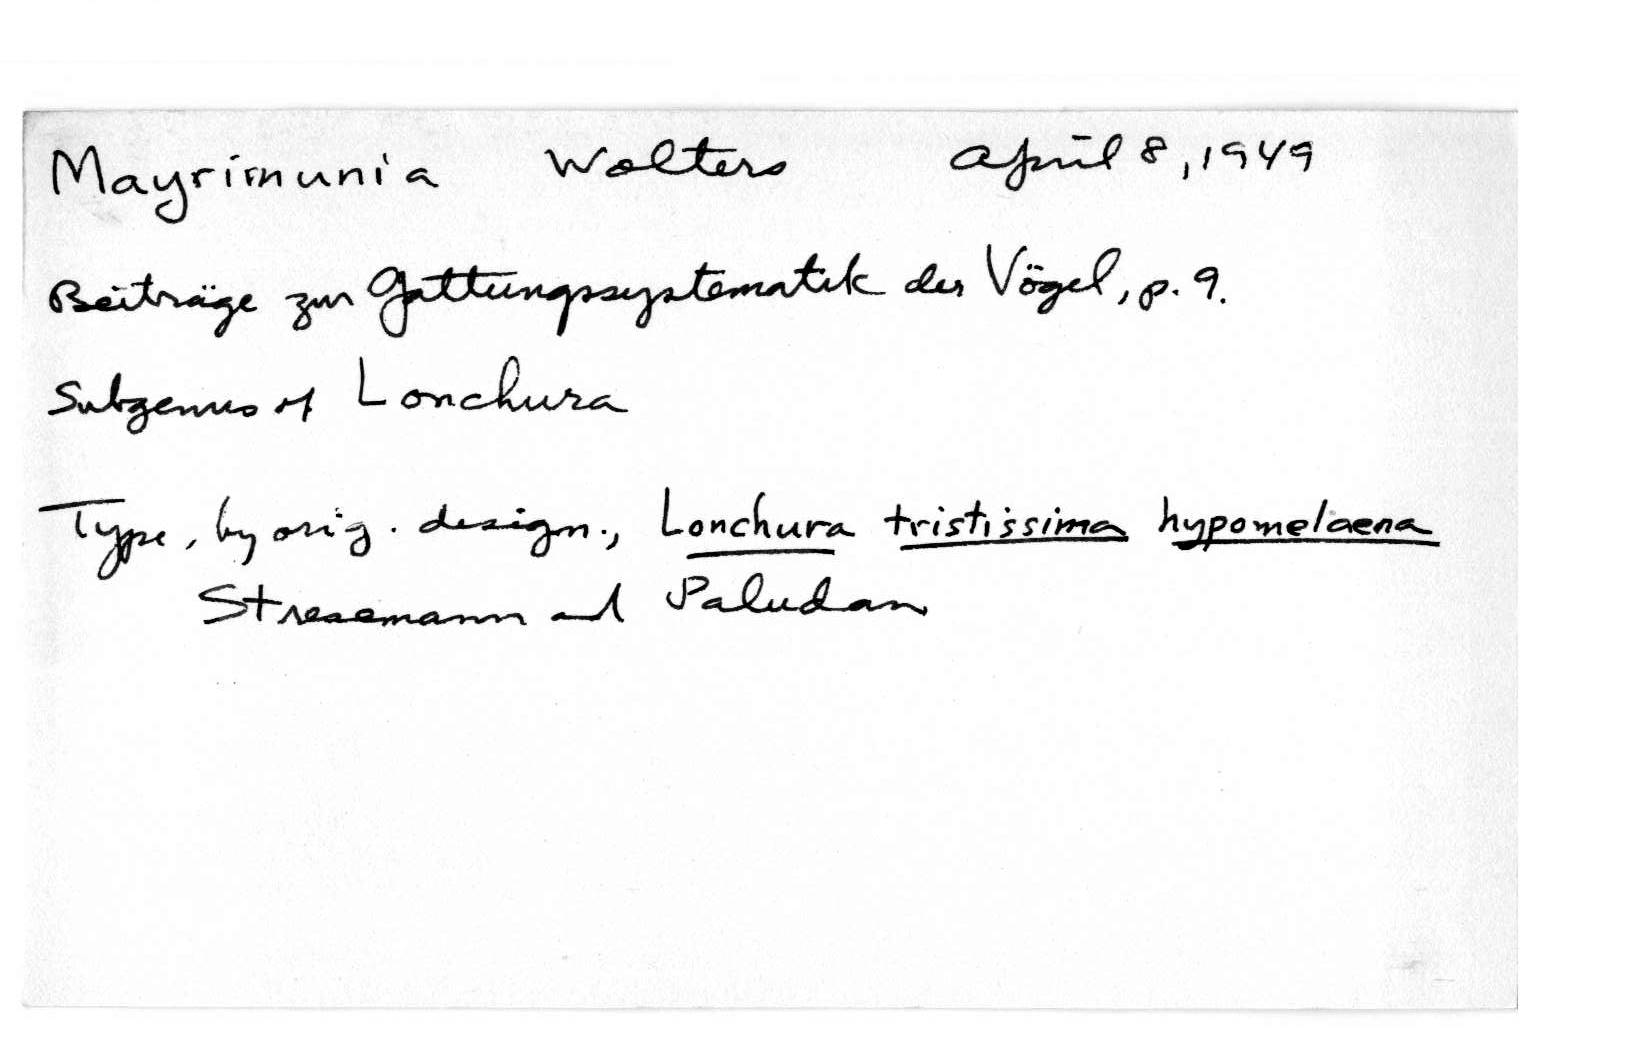 Mayrimunia Wolters April 8, 1949
Beiträge zur Gattungssystematik der Vögel, p. 9.
Subgenus of Lonchura
Type, by orig. design., Lonchura tristissima hypomelaena
Stresemann and Paludan